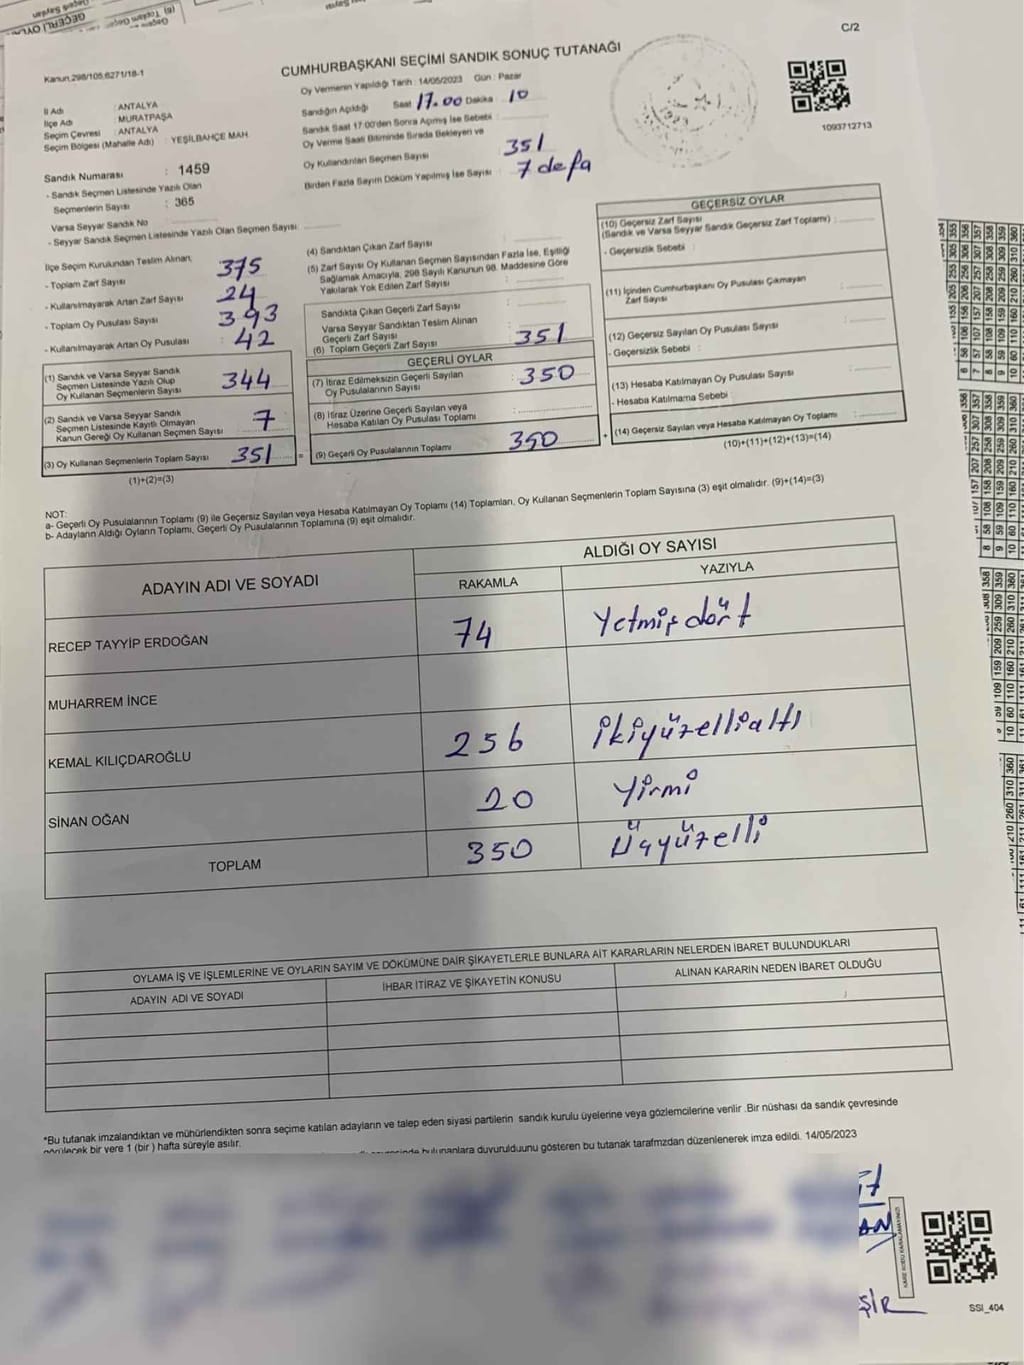 C/2
CUMHURBAŞKANI SEÇİMİ SANDIK SONUÇ TUTANAĞI
Kanun:298/105,6271/18-1
Oy Vermenin Yapıldığı Tarih : 14/05/2023 Gün : Pazar
Sandığın Açıldığı Saat 17.00 Dakika : 10
Sandık Saat 17:00'den Sonra Açılmış İse Sebebi :
Oy Verme Saati Bitiminde Sırada Bekleyen ve
Oy Kullandırılan Seçmen Sayısı : 351
Birden Fazla Sayım Döküm Yapılmış İse Sayısı : 7 defa
1093712713
İl Adı : ANTALYA
İlçe Adı : MURATPAŞA
Seçim Çevresi : ANTALYA
Seçim Bölgesi (Mahalle Adı) : YEŞİLBAHÇE MAH.
Sandık Numarası : 1459
- Sandık Seçmen Listesinde Yazılı Olan
Seçmenlerin Sayısı : 365
Varsa Seyyar Sandık No
- Seyyar Sandık Seçmen Listesinde Yazılı Olan Seçmen Sayısı:
İlçe Seçim Kurulundan Teslim Alınan;
- Toplam Zarf Sayısı : 375
- Kullanılmayarak Artan Zarf Sayısı : 24
- Toplam Oy Pusulası Sayısı : 393
- Kullanılmayarak Artan Oy Pusulası : 42
(1) Sandık ve Varsa Seyyar Sandık
Seçmen Listesinde Yazılı Olup
Oy Kullanan Seçmenlerin Sayısı : 344
(2) Sandık ve Varsa Seyyar Sandık
Seçmen Listesinde Kayıtlı Olmayan
Kanun Gereği Oy Kullanan Seçmen Sayısı : 7
(3) Oy Kullanan Seçmenlerin Toplam Sayısı : 351
(1)+(2)=(3)
(4) Sandıktan Çıkan Zarf Sayısı
(5) Zarf Sayısı Oy Kullanan Seçmen Sayısından Fazla İse, Eşitliği
Sağlamak Amacıyla, 298 Sayılı Kanunun 98. Maddesine Göre
Yakılarak Yok Edilen Zarf Sayısı :
Sandıkta Çıkan Geçerli Zarf Sayısı :
Varsa Seyyar Sandıktan Teslim Alınan
Geçerli Zarf Sayısı
(6) Toplam Geçerli Zarf Sayısı : 351
GEÇERLİ OYLAR
(7) İtiraz Edilmeksizin Geçerli Sayılan
Oy Pusulalarının Sayısı : 350
(8) İtiraz Üzerine Geçerli Sayılan veya
Hesaba Katılan Oy Pusulası Toplamı :
(9) Geçerli Oy Pusulalarının Toplamı : 350
GEÇERSİZ OYLAR
(10) Geçersiz Zarf Sayısı
(Sandık ve Varsa Seyyar Sandık Geçersiz Zarf Toplamı) :
- Geçersizlik Sebebi :
(11) İçinden Cumhurbaşkanı Oy Pusulası Çıkmayan
Zarf Sayısı
(12) Geçersiz Sayılan Oy Pusulası Sayısı :
- Geçersizlik Sebebi :
(13) Hesaba Katılmayan Oy Pusulası Sayısı :
- Hesaba Katılmama Sebebi :
(14) Geçersiz Sayılan veya Hesaba Katılmayan Oy Toplamı :
(10)+(11)+(12)+(13)=(14)
NOT:
a- Geçerli Oy Pusulalarının Toplamı (9) ile Geçersiz Sayılan veya Hesaba Katılmayan Oy Toplamı (14) Toplamları, Oy Kullanan Seçmenlerin Toplam Sayısına (3) eşit olmalıdır. (9)+(14)=(3)
b- Adayların Aldığı Oyların Toplamı, Geçerli Oy Pusulalarının Toplamına (9) eşit olmalıdır.
ADAYIN ADI VE SOYADI
ALDIĞI OY SAYISI
RAKAMLA YAZIYLA
RECEP TAYYİP ERDOĞAN 74 Yetmiş dört
MUHARREM İNCE
KEMAL KILIÇDAROĞLU 256 ikiyüzellialtı
SİNAN OĞAN 20 Yirmi
TOPLAM 350 Üçyüzelli
OYLAMA İŞ VE İŞLEMLERİNE VE OYLARIN SAYIM VE DÖKÜMÜNE DAİR ŞİKAYETLERLE BUNLARA AİT KARARLARIN NELERDEN İBARET BULUNDUKLARI
ADAYIN ADI VE SOYADI İHBAR İTİRAZ VE ŞİKAYETİN KONUSU ALINAN KARARIN NEDEN İBARET OLDUĞU
*Bu tutanak imzalandıktan ve mühürlendikten sonra seçime katılan adayların ve talep eden siyasi partilerin sandık kurulu üyelerine veya gözlemcilerine verilir .Bir nüshası da sandık çevresinde
görülecek bir yere 1 (bir ) hafta süreyle asılır.
bulunanlara duyurulduunu gösteren bu tutanak tarafmzdan düzenlenerek imza edildi. 14/05/2023
SSI_404